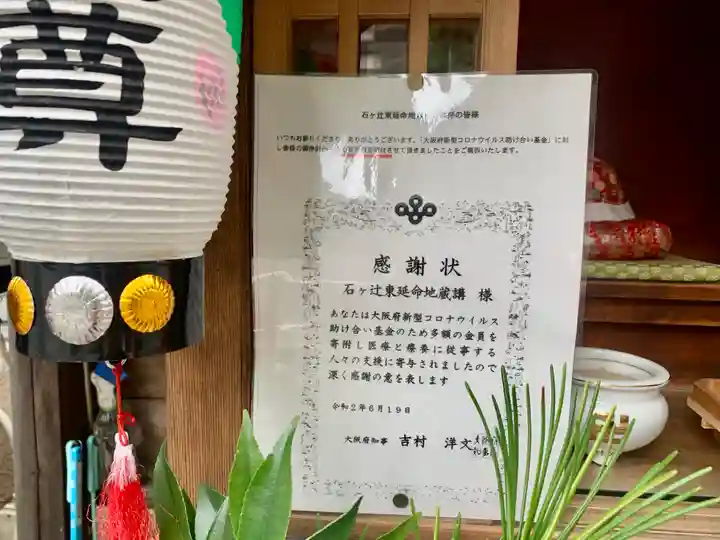 尊
石ヶ辻東延命地の皆様
いつもお参りくださり、ありがとうございます。「大阪府新型コロナウイルス助け合い基金」に対
し皆様の御浄財させて頂きましたことをご報告いたします。
感謝状
石ヶ辻東延命地蔵講 様
あなたは大阪府新型コロナウイルス
助け合い基金のため多額の金員を
寄附し医療と療養に従事する
人々の支援に寄与されましたので
深く感謝の意を表します
令和2年6月19日
大阪府知事 吉村 洋文